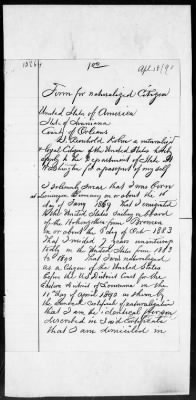 15264
100
Apl 18/90
Form for naturalized Citizen
United States of America
State of Louisiana
County of Orleans
I, a naturalized
& loyal Citizen of the United States hereby
apply to the Department of State at
Washington for a passport of myself
I solemnly swear that I was born
Germany on or about the 10
day of Jany 1869 That I emigrated
to the United States Sailing on board
of the from Bremen
on or about the 5 day of Oct 1883
That I resided 7 years uninterrup
tedly in the United States from 1883
to 1890 That I was naturalized
as a Citizen of the United States
before the U.S. District Court for the
Eastern District of Louisiana on the
11th Day of April 1890 as shown by
the Certificate of naturalization
that I am the identical person
described in said Certificate
that I am domiciled in